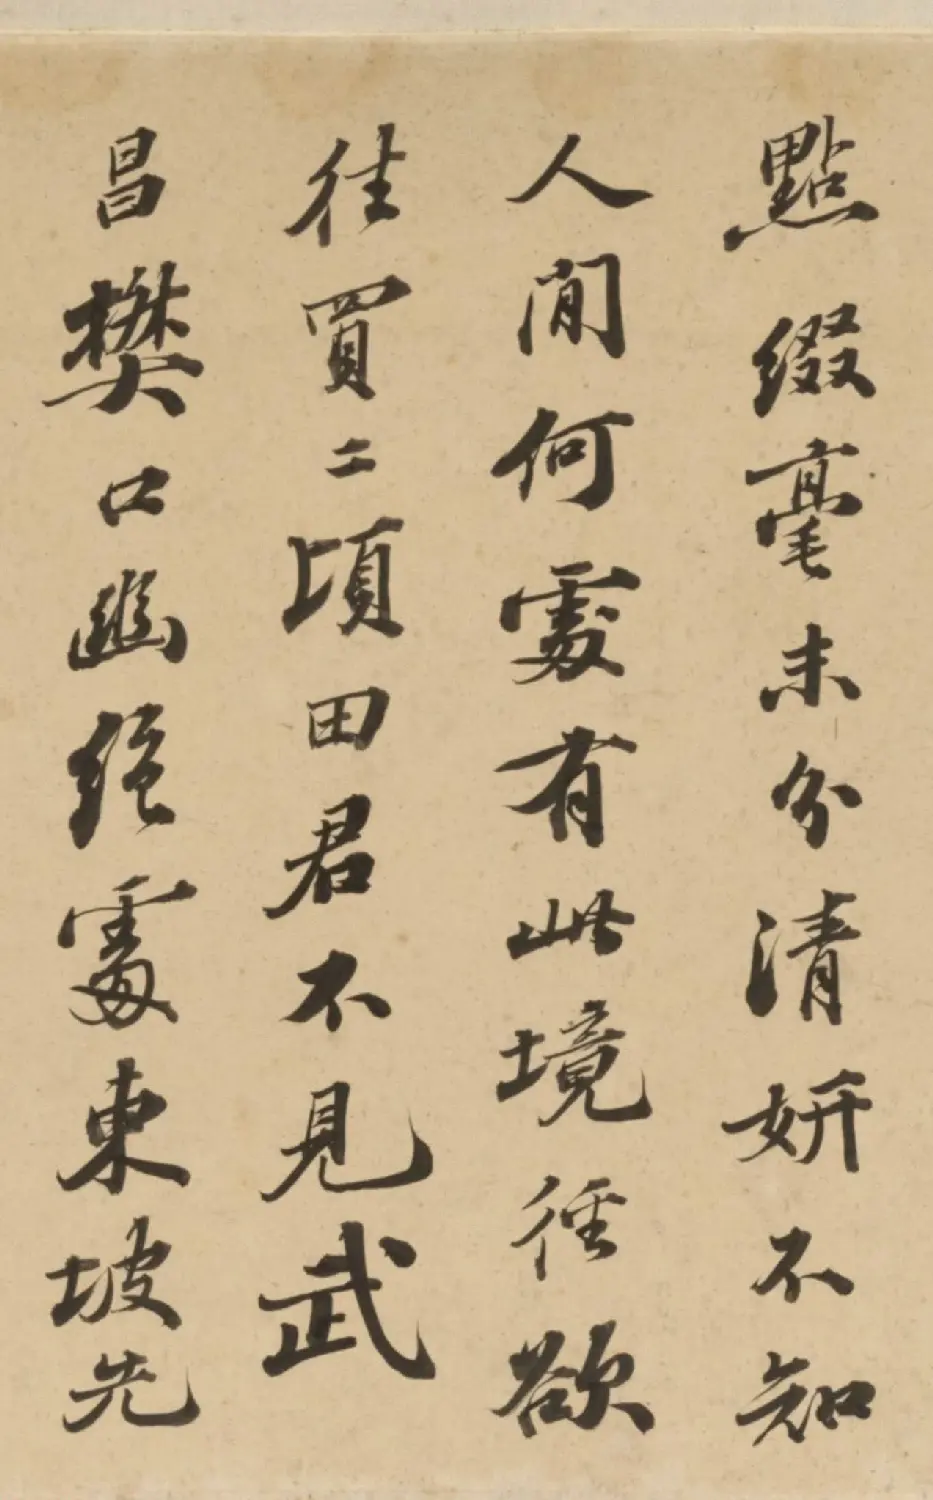 點綴毫末分清妍不知
人間何處有此境徑欲
往買二頃田君不見武
昌樊口幽絕處東坡先